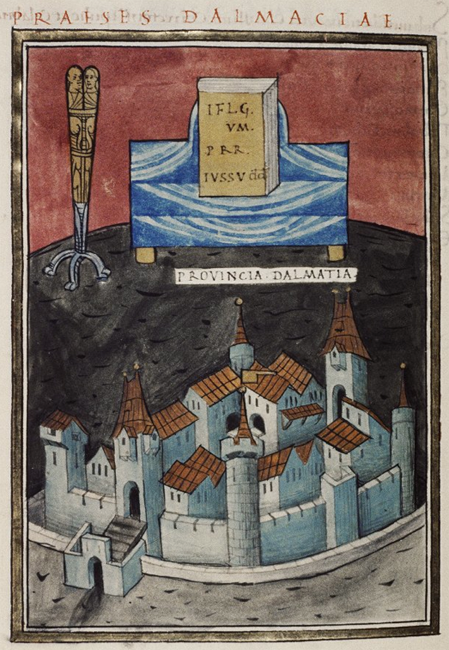 PRAESES DALMACIAE
IFLG.
VM.
PRR.
IVSSV dd
PROVINCIA·DALMATIA